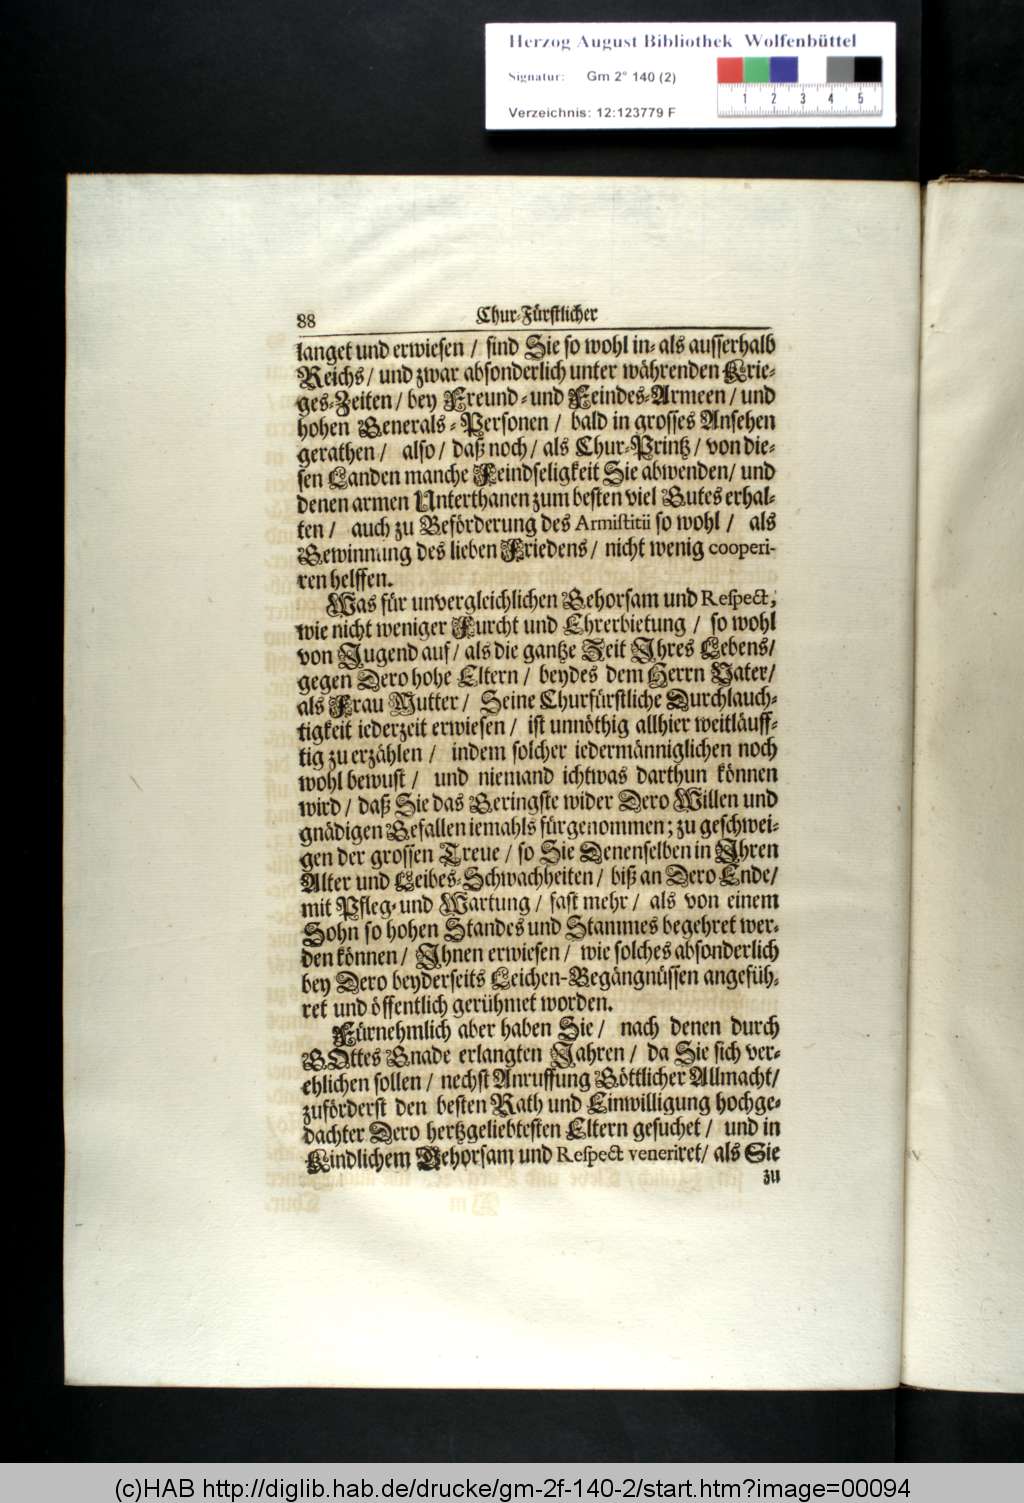 Herzog August Bibliothek Wolfenbüttel
Signatur: Gm 2° 140 (2)
Verzeichnis: 12:123779 F
1 2 3 4 5
88 Chur-Fürstlicher
langet und erwiesen / sind Sie so wohl in- als ausserhalb
Reichs / und zwar absonderlich unter währenden Krie-
ges-Zeiten / bey Freund- und Feindes-Armeen / und
hohen Generals-Personen / bald in grosses Ansehen
gerathen / also / daß noch / als Chur-Printz / von die-
sen Landen manche Feindseligkeit Sie abwenden / und
denen armen Unterthanen zum besten viel Gutes erhal-
ten / auch zu Beförderung des Armistitii so wohl / als
Gewinnung des lieben Friedens / nicht wenig cooperi-
ren helffen.
Was für unvergleichlichen Gehorsam und Respect,
wie nicht weniger Furcht und Ehrerbietung / so wohl
von Jugend auf / als die gantze Zeit Ihres Lebens /
gegen Dero hohe Eltern / beydes dem Herrn Vater /
als Frau Mutter / Seine Churfürstliche Durchlauch-
tigkeit iederzeit erwiesen / ist unnöthig allhier weitläuff-
tig zu erzählen / indem solcher iedermänniglichen noch
wohl bewust / und niemand ichtwas darthun können
wird / daß Sie das Geringste wider Dero Willen und
gnädigen Gefallen iemahls fürgenommen; zu geschwei-
gen der grossen Treue / so Sie Denenselben in Ihren
Alter und Leibes-Schwachheiten / biß an Dero Ende /
mit Pfleg- und Wartung / fast mehr / als von einem
Sohn so hohen Standes und Stammes begehret wer-
den können / Ihnen erwiesen / wie solches absonderlich
bey Dero beyderseits Leichen-Begängnüssen angefüh-
ret und öffentlich gerühmet worden.
Fürnehmlich aber haben Sie / nach denen durch
GOttes Gnade erlangten Jahren / da Sie sich ver-
ehlichen sollen / nechst Anruffung Göttlicher Allmacht /
zuförderst den besten Rath und Einwilligung hochge-
dachter Dero hertzgeliebtesten Eltern gesuchet / und in
Kindlichem Gehorsam und Respect veneriret / als Sie
zu
(c)HAB http://diglib.hab.de/drucke/gm-2f-140-2/start.htm?image=00094